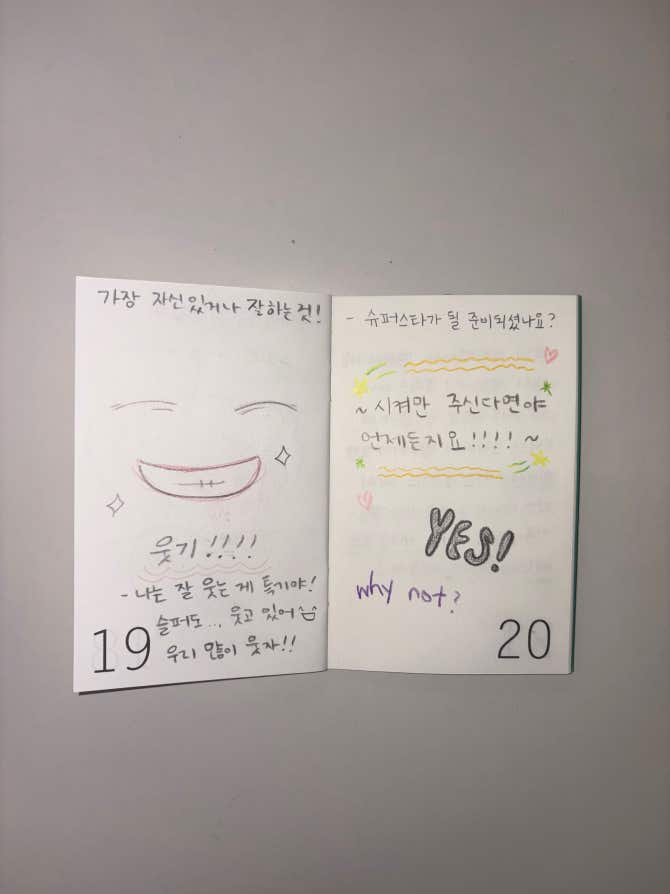 가장 자신있거나 잘하는것!
웃기!!!!
- 나는 잘 웃는 게 특기야!
슬퍼도... 웃고 있어
우리 많이 웃자!!
19
- 슈퍼스타가 될 준비되셨나요?
~ 시켜만 주신다면야
언제든지요!!!! ~
YES!
why not?
20